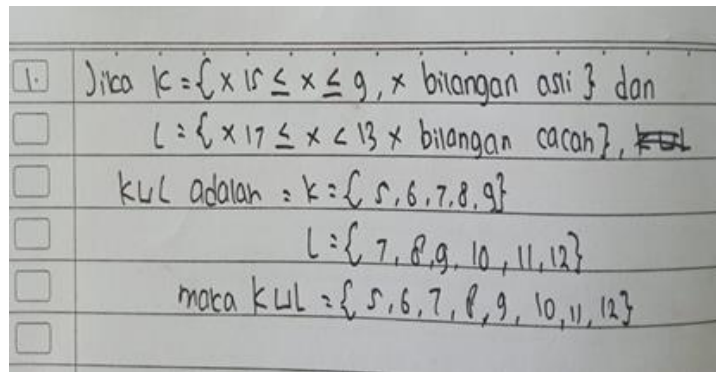 1. Jika K = {x | 5 ≤ x ≤ 9, x bilangan asli} dan
L = {x | 7 ≤ x < 13 x bilangan cacah}, K∪L
K∪L adalah = K = {5, 6, 7, 8, 9}
L = {7, 8, 9, 10, 11, 12}
maka K∪L = {5, 6, 7, 8, 9, 10, 11, 12}